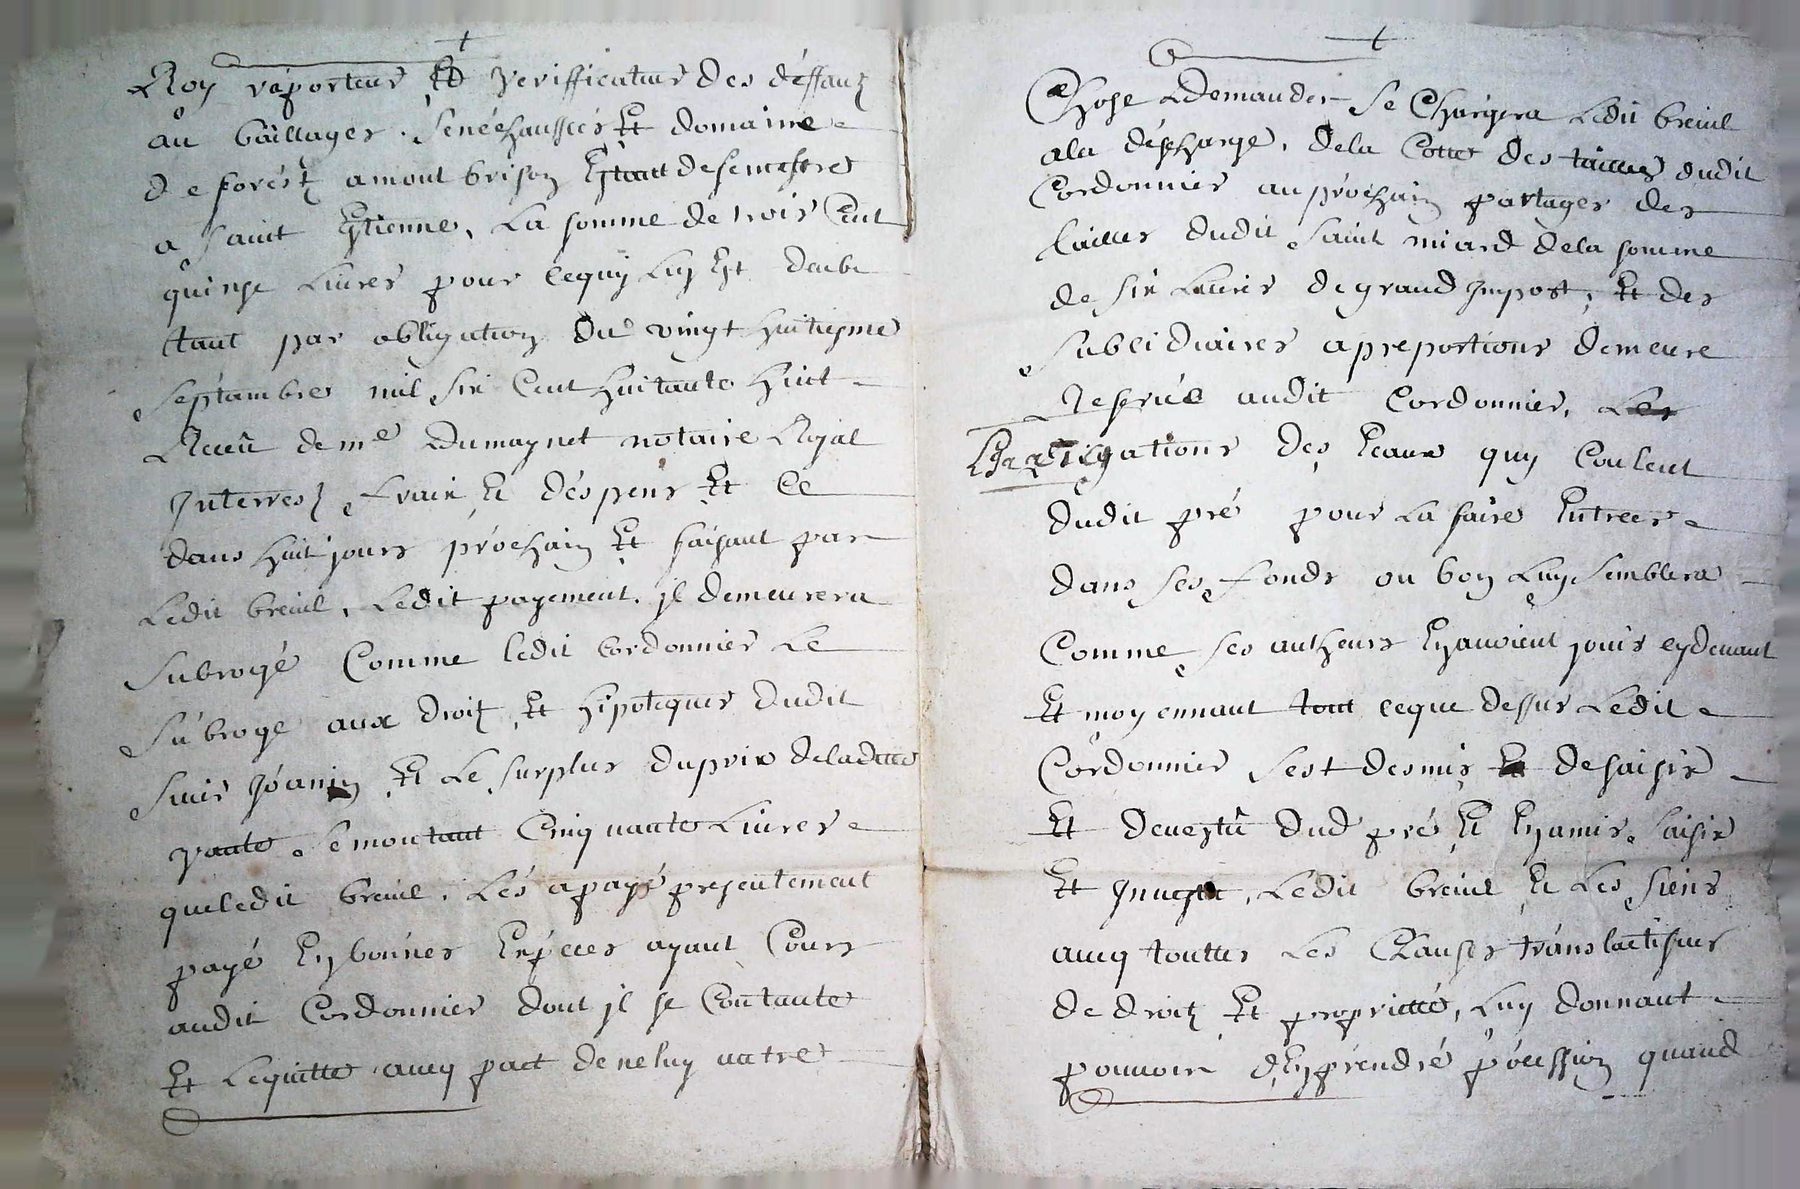 Roy raporteur Et veriffieateur des déffautz
au baillages. Senéchaussées Et domaine
de forést amontbrison Estant desencestre
a saint Estienne, La somme de trois Cent
quinze Livres pour cequy Luy Est deube
tant par obligation du vingt huitiesme
septambre mil six Cent huitante huit
Receu de me dumaynet notaire Royal
Interrestz fraix Et déspens Et Ce
dans huit jours prochain Et faisant par
Ledit breuil, Ledit payement. jl demeurera
subrogé Comme ledit Cordonnier Le
subroge aux droitz Et hipoteques dudit
sieur Joanin Et Le surplus duprix deladitte
vante. semontant Cinquante Livres
queledit breuil. Lés apayé presentement
payé En bonnes Espéces ayant Cours
audit Cordonnier dont jl se Contante
Et Lequitte avecq pact de neluy autre
Chose demander Se Chargera Ledit breuil
ala décharge, dela Cotte des tailles dudit
Cordonnier auprochain partages des
tailles dudit Saint miard dela somme
de six Livres de grand Impost, Et des
Subcidiaires apreportions demeure
Reservée audit Cordonnier,
gations des Eaux quy Coulent
dudit pré pour La faire Entrer
dans ses fonds ou bon Luy Semblera
Comme ses autheurs Enavoient jouis cydevant
Et moyennant tout ceque dessus Ledit
Cordonnier Sest desmis Et desaisis
Et devestû dud pré Et Enamis. Saisir
Et Investu, Ledit breuil Et Les Siens
avecq touttes Les Clauses translactifves
de droitz Et proprietté, Luy donnant
pouvoir d'En prendre possession quand